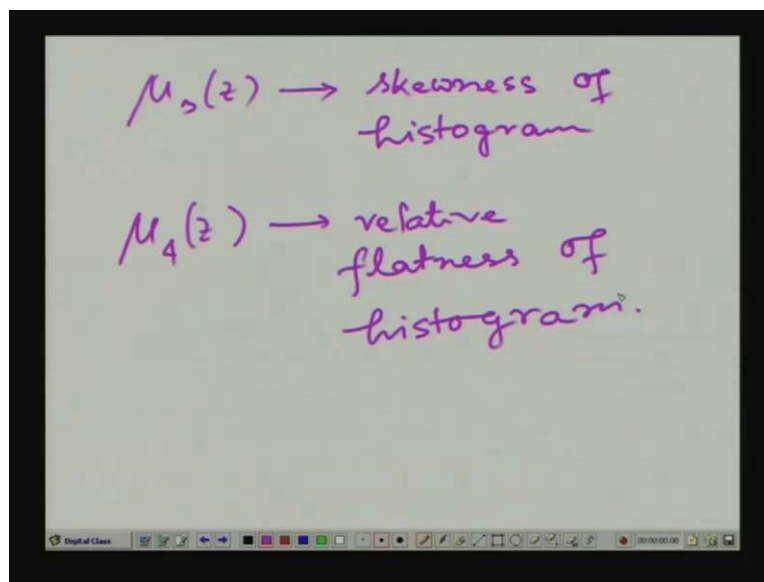 μ₃(z) → skewness of
histogram
μ₄(z) → relative
flatness of
histogram.
Digital Class
00:00:00.00